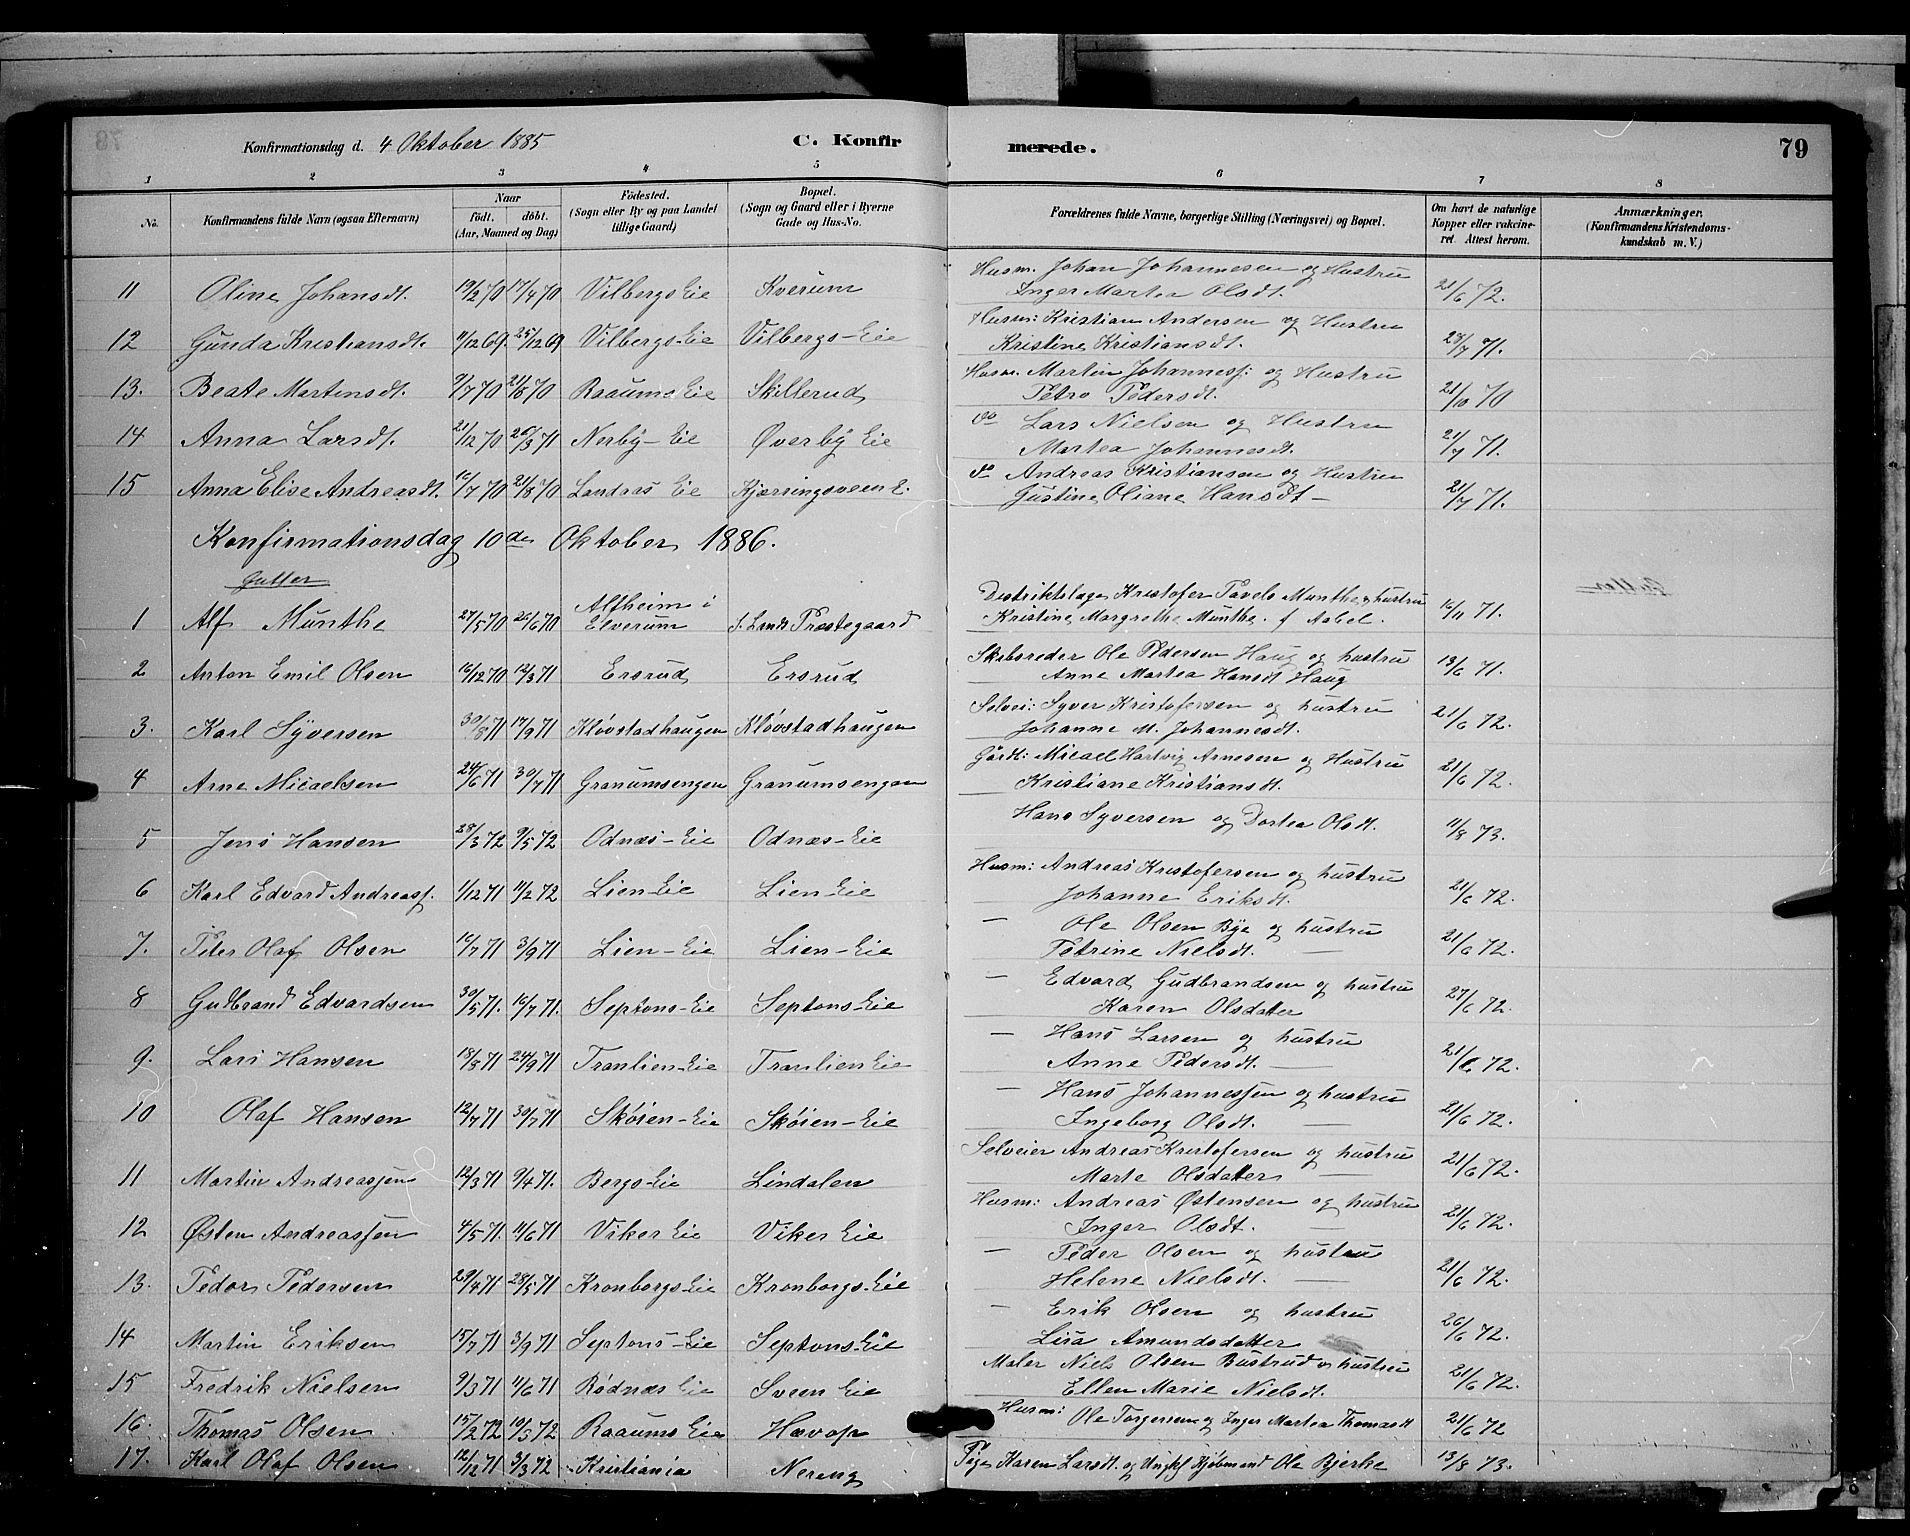 Konfirmationsdag d. 4 Oktober 1885 C. Konfirmerede. 79
1 2 3 4 5 6 7 8
No. Konfirmandens fulde Navn (ogsaa Efternavn) Naar födt. döbt. (Aar, Maaned og Dag) Födested. (Sogn eller By og paa Landet tillige Gaard) Bopæl. (Sogn og Gaard eller i Byerne Gade og Hus-No. Forældrenes fulde Navne, borgerlige Stilling (Næringsvei) og Bopæl. Om havt de naturlige Kopper eller vakcineret. Attest herom. Anmærkninger. (Konfirmandens Kristendomskundskab m. V.)
11 Oline Johansdt. 19/2 70 17/4 70 Vilbergs Eie Kverum Husm. Johan Johannesen og Hustru
Inger Martea Olsdt. 21/6 72.
12 Gunda Kristiansdt. 11/12 69. 25/12 69 Vilbergs-Eie Vilbergs-Eie Husm: Kristian Andersen og Hustru
Kristine Kristiansdt. 27/7 71.
13. Beate Martinsdt. 9/7 70 21/8 70 Raaums Eie Skillerud Husm. Martin Johanness: og Hustru
Petro Pedersdt. 21/10 70
14 Anna Larsdt. 21/12 70 26/3 71 Nerby-Eie Øverby Eie do Lars Nielsen og Hustru
Martea Johannesdt. 21/7 71.
15 Anna Elise Andreasdt. 16/7 70 21/8 70 Landaas Eie Kjærringsveen E. do Andreas Kristiansen og Hustru
Gustine Oliane Hansdt - 21/7 71.
Konfirmationsdag 10de Oktober 1886.
Gutter
1 Alf Munthe 27/5 70 26/6 70 Alfheim i Elverum S. Lands Præstegaard Distriktslæge Kristofer Pavels Munthe & hustru
Kristine Margrethe Munthe f Aabel. 16/11 71.
2 Anton Emil Olsen 16/12 70 12/3 71 Ersrud Ersrud Skibsreder Ole Pedersen Haug og hustru
Anne Martea Hansdt Haug 13/6 71.
3. Karl Syversen 30/8 71 17/9 71 Kløvstadhaugen Kløvstadhaugen Selvei: Syver Kristofersen og hustru
Johanne M. Johannesdt. 21/6 72.
4 Arne Micaelsen 24/6 71 30/7 71 Granumsengen Granumsengen Gårdb: Micael Hartvig Arnesen og Hustru
Kristiane Kristiansdt. 21/6 72.
5 Jens Hansen 28/3 72 9/5 72 Odnæs-Eie Odnæs-Eie Hans Syversen og Dortea Olsdt. 11/8 73.
6 Karl Edvard Andreass. 1/12 71 11/2 72 Lien-Eie Lien-Eie Husm: Andreas Kristofersen og hustru
Johanne Eriksdt. 21/6 72.
7. Peter Olaf Olsen 16/7 71 3/9 71 Lien-Eie Lien-Eie - Ole Olsen Bye og hustru
Petrine Nielsdt. - 21/6 72.
8 Gudbrand Edvardsen 30/5 71. 16/7 71. Septons-Eie Septons-Eie - Edvard Gudbrandsen og hustru
Karen Olsdatter 27/6 72.
9. Lars Hansen 18/8 71 24/9 71 Tranlien-Eie Tranlien Eie - Hans Larsen og hustru
Anne Pedersdt. - 21/6 72.
10 Olaf Hansen 12/7 71 30/7 71 Skøien-Eie Skøien-Eie - Hans Johannessen og hustru
Ingeborg Olsdt. - 21/6 72.
11 Martin Andreassen 12/3 71 9/4 71. Bergs-Eie Lindalen Selveier Andreas Kristofersen og hustru
Marte Olsdatter - 21/6 72.
12 Østen Andreassen 4/5 71. 11/6 71 Viker Eie Viker Eie Husm: Andreas Østensen og hustru
Inger Olsdt. - 21/6 72.
13. Peder Pedersen 29/4 71 28/5 71 Kronborgs-Eie Kronborgs-Eie - Peder Olsen og hustru
Helene Nielsdt. - 21/6 72.
14 Martin Eriksen 15/7 71 3/9 71 Septons-Eie Septons-Eie - Erik Olsen og hustru
Lisa Amundsdatter 26/6 72.
15 Fredrik Nielsen 9/3 71 11/6 71 Rødnæs Eie Sveen Eie Maler Niels Olsen Bustrud & hustru
Ellen Marie Nielsdt. 21/6 72.
16. Thomas Olsen 15/2 72 10/3 72 Raaums Eie Hævop Husm: Ole Torgersen og Inger Martea Thomasdt 21/6 72
17. Karl Olaf Olsen 12/12 71 3/3 72 Kristiania Nereng Pige Karen Larsdt. og Ungkf Kjøbmand Ole Bjerke 13/8 73.